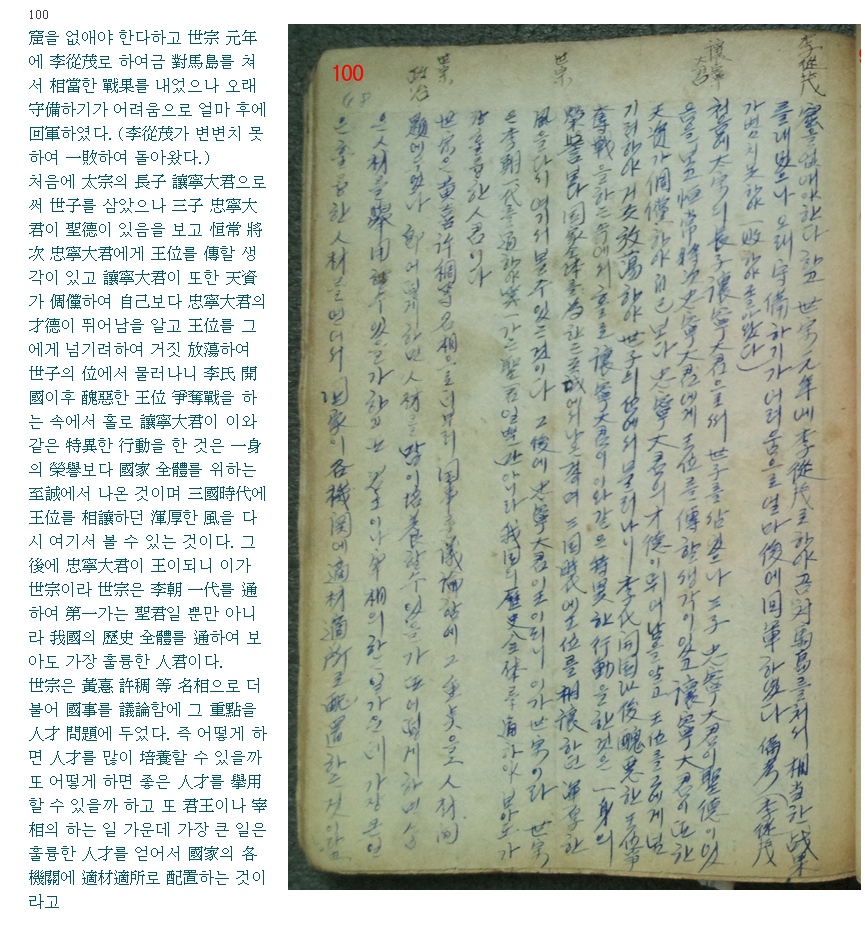 100
窟을 없애야 한다하고 世宗 元年
에 李從茂로 하여금 對馬島를 쳐
서 相當한 戰果를 내었으나 오래
守備하기가 어려움으로 얼마 후에
回軍하였다. (李從茂가 변변치 못
하여 一敗하여 돌아왔다.)
처음에 太宗의 長子 讓寧大君으로
써 世子를 삼았으나 三子 忠寧大
君이 聖德이 있음을 보고 恒常 將
次 忠寧大君에게 王位를 傳할 생
각이 있고 讓寧大君이 또한 天資
가 倜儻하여 自己보다 忠寧大君의
才德이 뛰어남을 알고 王位를 그
에게 넘기려하여 거짓 放蕩하여
世子의 位에서 물러나니 李氏 開
國이후 醜惡한 王位 爭奪戰을 하
는 속에서 홀로 讓寧大君이 이와
같은 特異한 行動을 한 것은 一身
의 榮譽보다 國家 全體를 위하는
至誠에서 나온 것이며 三國時代에
王位를 相讓하던 渾厚한 風을 다
시 여기서 볼 수 있는 것이다. 그
後에 忠寧大君이 王이되니 이가
世宗이라 世宗은 李朝 一代를 通
하여 第一가는 聖君일 뿐만 아니
라 我國의 歷史 全體를 通하여 보
아도 가장 훌륭한 人君이다.
世宗은 黃憙 許稠 等 名相으로 더
불어 國事를 議論함에 그 重點을
人才 問題에 두었다. 즉 어떻게 하
면 人才를 많이 培養할 수 있을까
또 어떻게 하면 좋은 人才를 擧用
할 수 있을까 하고 또 君王이나 宰
相의 하는 일 가운데 가장 큰 일은
훌륭한 人才를 얻어서 國家의 各
機關에 適材適所로 配置하는 것이
라고
100
李從茂
讓寧大君
世宗
世宗
政治
窟을 없애야 한다 하고 世宗 元年에 李從茂로 하야금 対馬島를 처서 相当한 战果
를 내었으나 오래 守備하기가 어려움으로 얼마 後에 回軍하였다 備考(李從茂
가 변변치 못하야 一敗하야 돌아왔다)
처음에 太宗의 長子 讓寧大君으로써 世子를 삼았으나 三子 忠寧大君이 聖德이 있
음을 보고 恒常 將次 忠寧大君에게 王位를 傳할 생각이 있고 讓寧大君이 또한
天資가 倜儻하야 自己보다 忠寧大君의 才德이 뛰어남을 알고 王位를 그에게 넘
기려하야 거짓 放蕩하야 世子의 位에서 물러나니 李氏 開国以後 醜惡한 王位爭
奪戰을 하는 속에서 홀로 讓寧大君이 이와 같은 特異한 行動을 한 것은 一身의
榮譽보다 国家全体를 為하는 至誠에서 나온 것이며 三国時代에 王位를 相讓하던 渾厚한
風을 다시 여기서 볼 수 있는 것이다 그 後에 忠寧大君이 王이 되니 이가 世宗이라 世宗
은 李朝一代를 通하야 第一가는 聖君일 뿐만 아니라 我国의 歷史 全体를 通하야 보아도 가
장 훌륭한 人君이다
世宗은 黃喜 許稠 等 名相으로 더부러 国事를 議論함에 그 重点을 人材 問
題에 두었다 즉 어떻게 하면 人材를 많이 培養할 수 있을가 또 어떻게 하면 좋
은 人材를 擧用할 수 있을가 하고 또 君王이나 宰相의 하는 일 가운데 가장 큰 일
은 훌륭한 人材를 얻어서 国家의 各 機関에 適材適所로 配置하는 것이라고